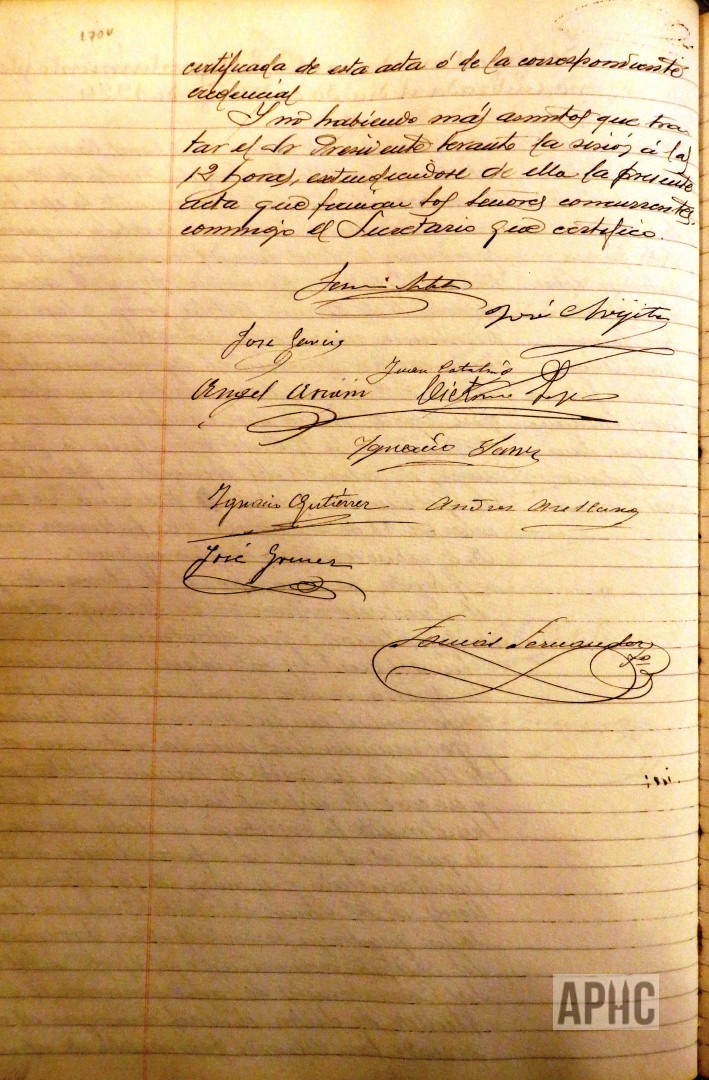 170v
certificada de esta acta ó de la correspondiente
credencial
Y no habiendo más asuntos que tra-
tar el Sr Presidente levanto la sesión á las
12 horas, extendiendose de ella la presente
acta que firman los señores concurrentes,
conmigo el Secretario que certifico.
José
José Garcia
Juan Catalño
Angel
Ignacio
Ignacio Gutiérrez Andres Arellano
José Gomez
Tomás Fernandez
APHC